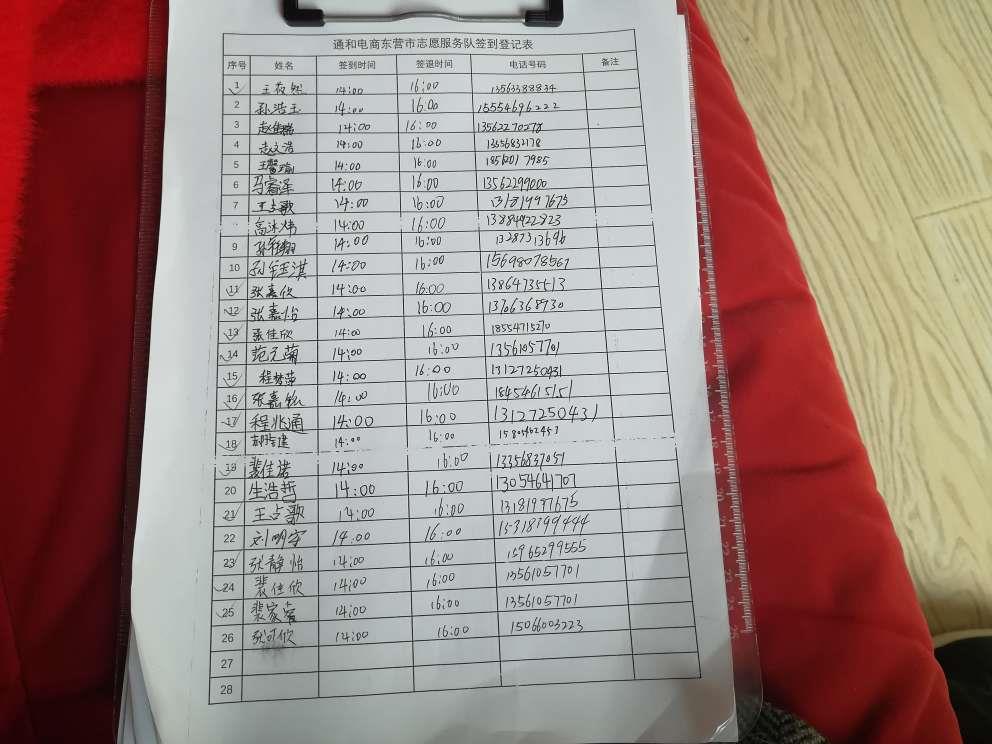 通和电商东营市志愿服务队签到登记表
序号 姓名 签到时间 签退时间 电话号码 备注
1 14:00 16:00 13563388834
2 孙浩玉 14:00 16:00 15554696222
3 14:00 16:00 13562270278
4 赵文浩 14:00 16:00 13356832178
5 王馨瑜 14:00 16:00
6 马睿泽 14:00 16:00 13562299000
7 王占歌 14:00 16:00 13181997675
14:00 16:00 13884922823
9 14:00 16:00 13287313696
10 孙钰淇 14:00 16:00 15698078567
11 张嘉欣 14:00 16:00 13864735513
12 张嘉怡 14:00 16:00 13706368730
13 裴佳欣 14:00 16:00
14 范元菊 14:00 16:00 13561057701
15 程梦萍 14:00 16:00 13127250431
16 张嘉 14:00 16:00 18454615151
17 程兆通 14:00 16:00 13127250431
18 14:00 16:00
19 裴佳诺 14:00 16:00 13356837051
20 生浩哲 14:00 16:00 13054641707
21 王占歌 14:00 16:00 13181997675
22 刘明宇 14:00 16:00 15318399444
23 张静怡 14:00 16:00 15965299555
24 裴佳欣 14:00 16:00 13561057701
25 裴家 14:00 16:00 13561057701
26 张可欣 14:00 16:00 15066003223
27
28